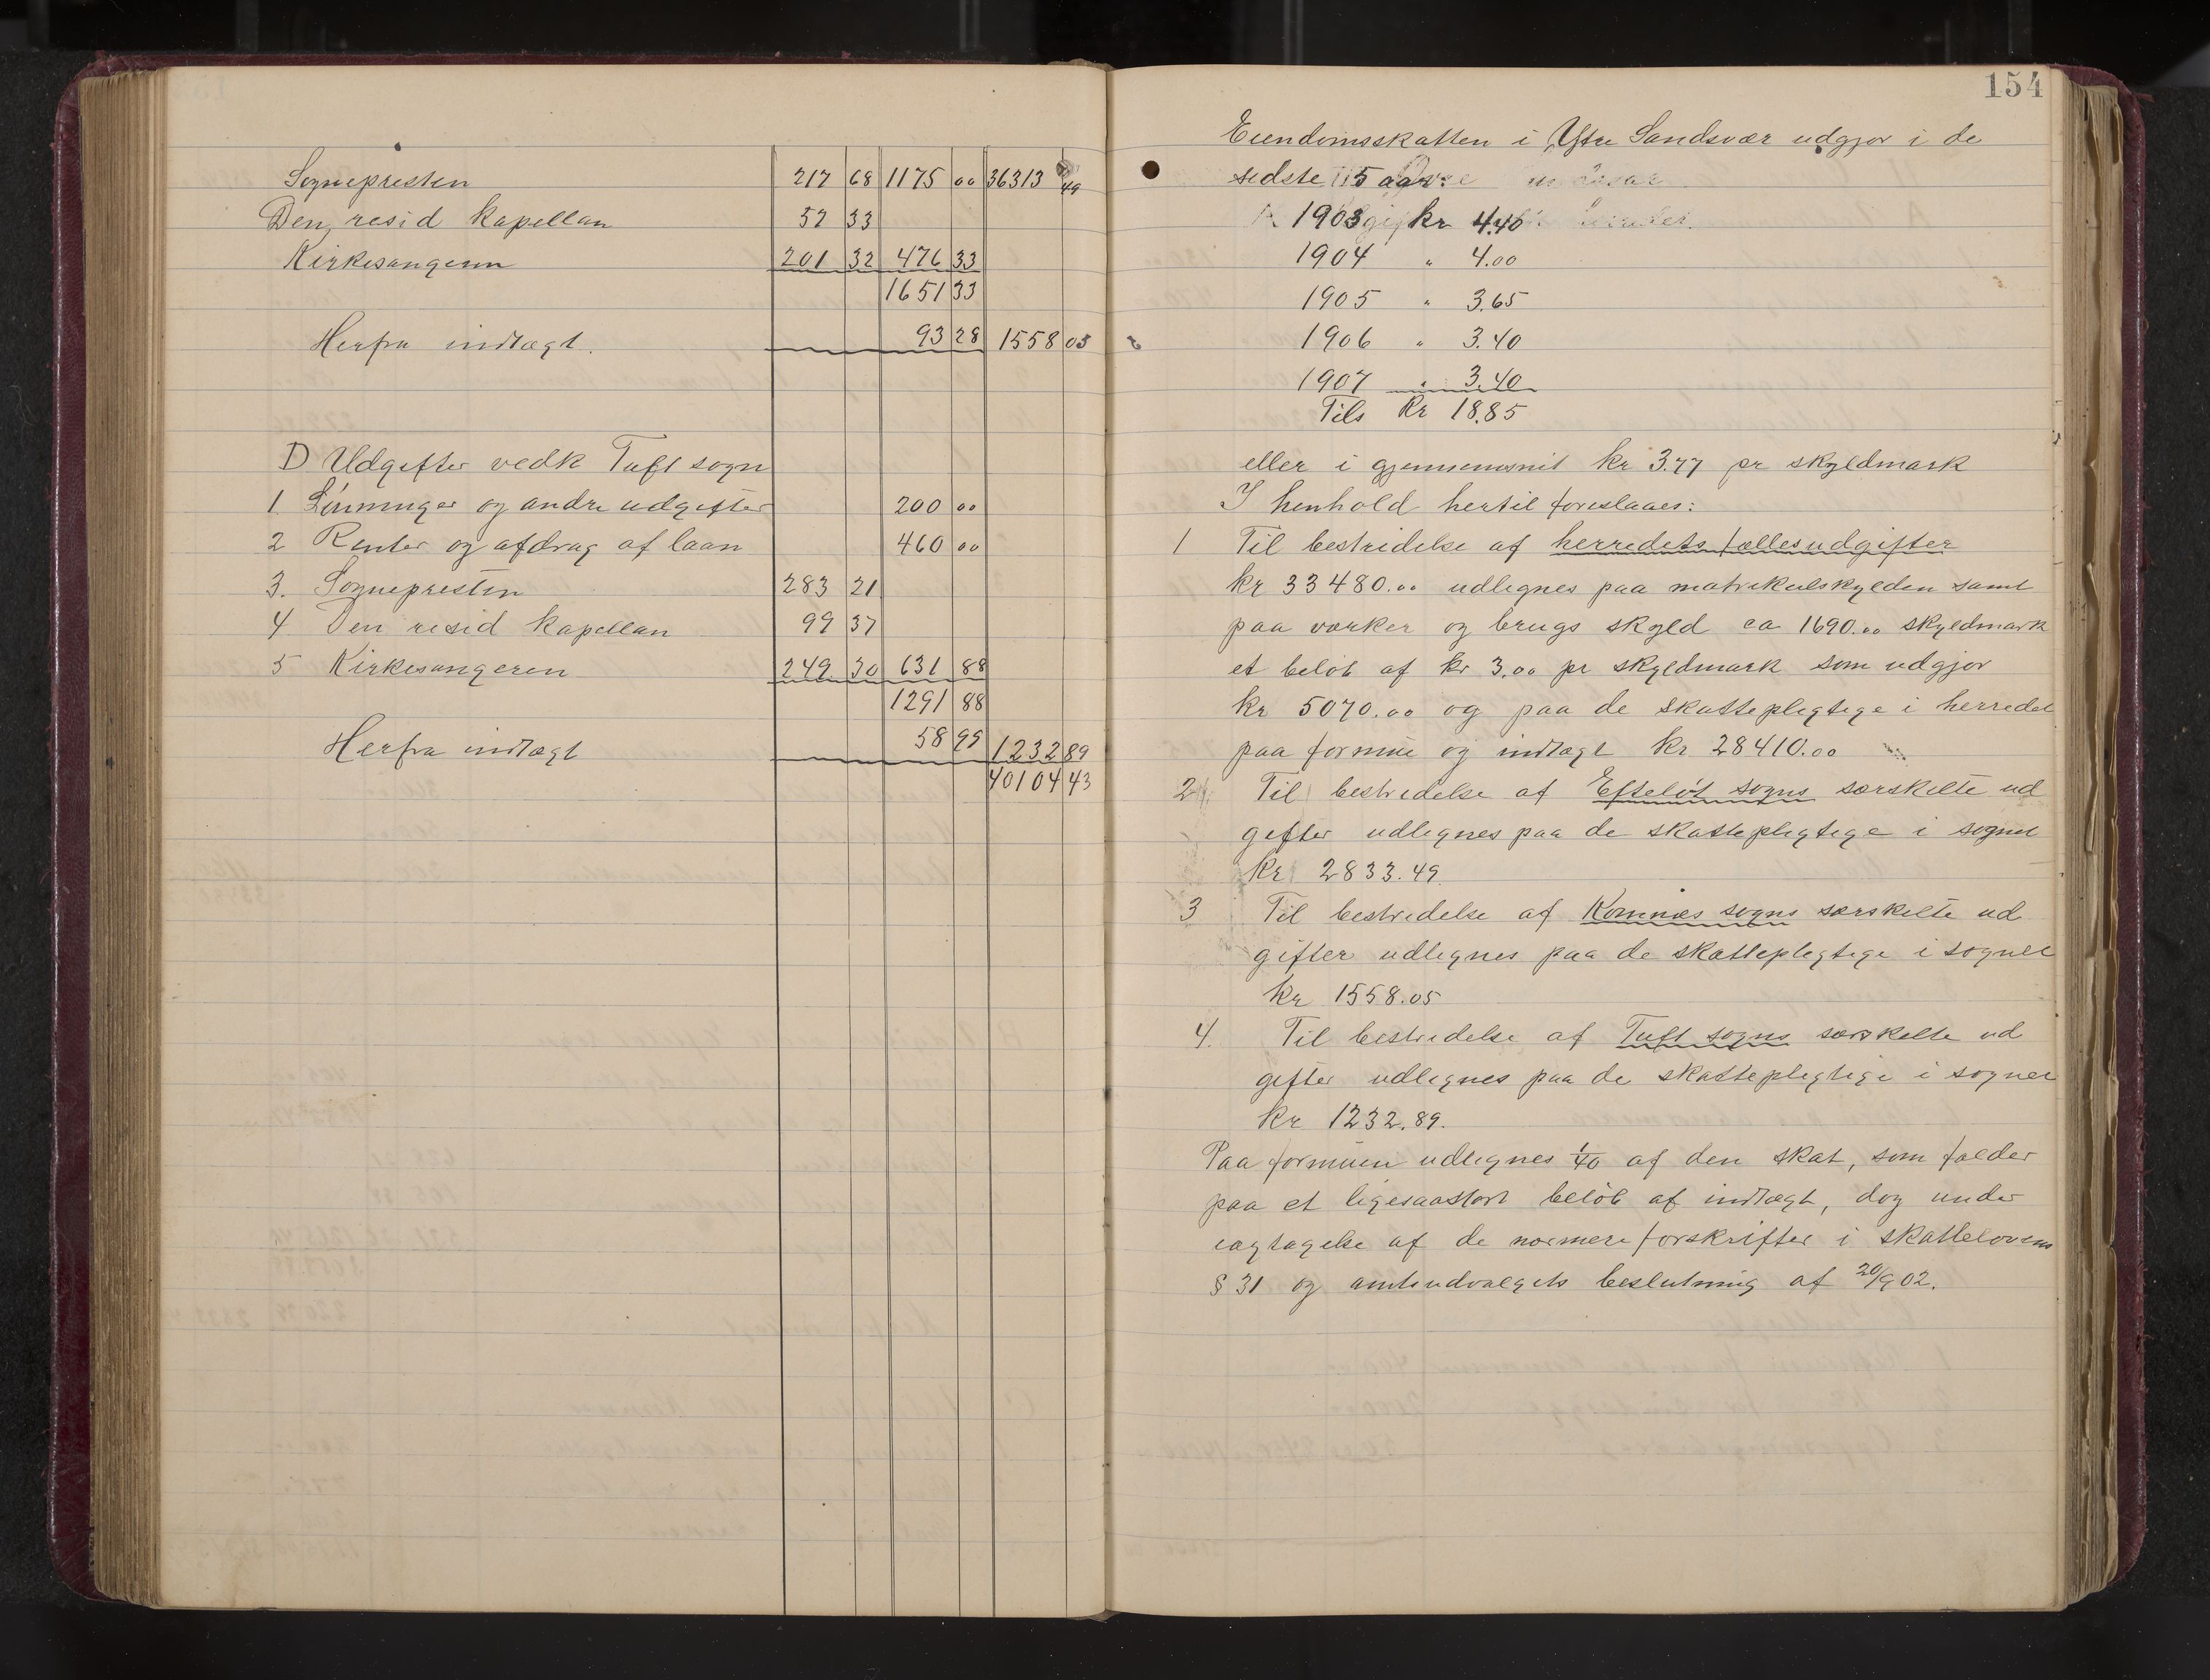 Sognepresten 217 68 1175 00 36313 49
Den resid kapellan 57 33
Kirkesangeren 201 32 476 33
1651 33
Herfra indtægt. 93 28 1558 05
D Udgifter vedk Tuft sogn
1 Lønninger og andre udgifter 200 00
2 Renter og afdrag af laan 460 00
3. Sognepresten 283 21
4 Den resid kapellan 99 37
5 Kirkesangeren 249 30 631 88
1291 88
Herfra indtægt 58 99 1232 89
40104 43
154
Eiendomsskatten i Ytre Sandsvær udgjør i de
sidste 5 aar:
1903 kr 4.40
1904 " 4.00
1905 " 3.65
1906 " 3.40
1907 " 3.40
Tils kr 18.85
eller i gjennemsnit kr 3.77 pr skyldmark
I henhold hertil foreslaaes:
1 Til bestridelse af herredets fællesudgifter
kr 33480.00 udlignes paa matrikulskylden samt
paa værker og brugs skyld ca 1690.00 skyldmark
et beløb af kr 3.00 pr skyldmark som udgjør
kr 5070.00 og paa de skattepligtige i herredet
paa formue og indtægt kr 28410.00
2 Til bestridelse af Efteløt sogns særskilte ud
gifter udlignes paa de skattepligtige i sognet
kr 2833.49.
3 Til bestridelse af Komnæs sogns særskilte ud
gifter udlignes paa de skattepligtige i sognet
kr 1558.05
4. Til bestridelse af Tuft sogns særskilte ud
gifter udlignes paa de skattepligtige i sognet
kr 1232.89.
Paa formuen udlignes 1/40 af den skat, som falder
paa et ligesaastort beløb af indtægt, dog under
iagtagelse af de nærmere forskrifter i skattelovens
§ 31 og amtsudvalgets beslutning af 20/9 02.